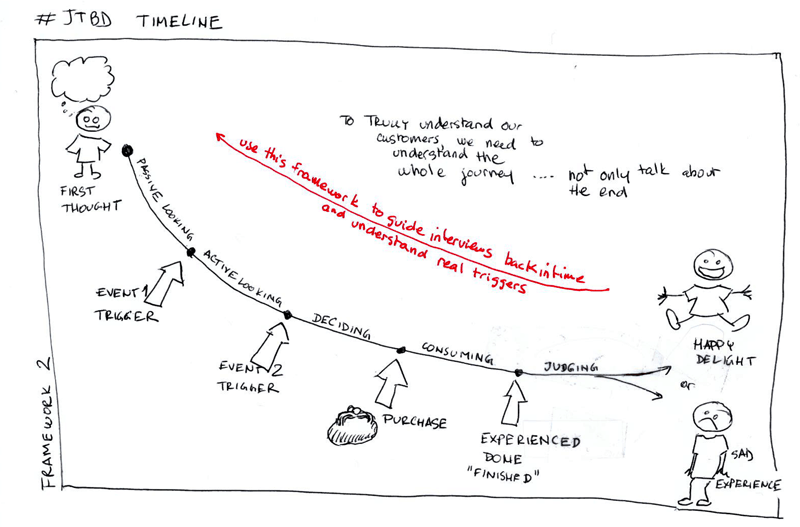 #JTBD TIMELINE
To TRULY understand our
customers, we need to
understand the
whole journey .... not only talk about
the end
use this framework to guide interviews back in time
and understand real triggers
FIRST
THOUGHT
PASSIVE LOOKING
EVENT 1
TRIGGER
ACTIVE LOOKING
EVENT 2
TRIGGER
DECIDING
PURCHASE
CONSUMING
EXPERIENCED
DONE
"FINISHED"
JUDGING
HAPPY
DELIGHT
or
SAD
EXPERIENCE
FRAMEWORK 2